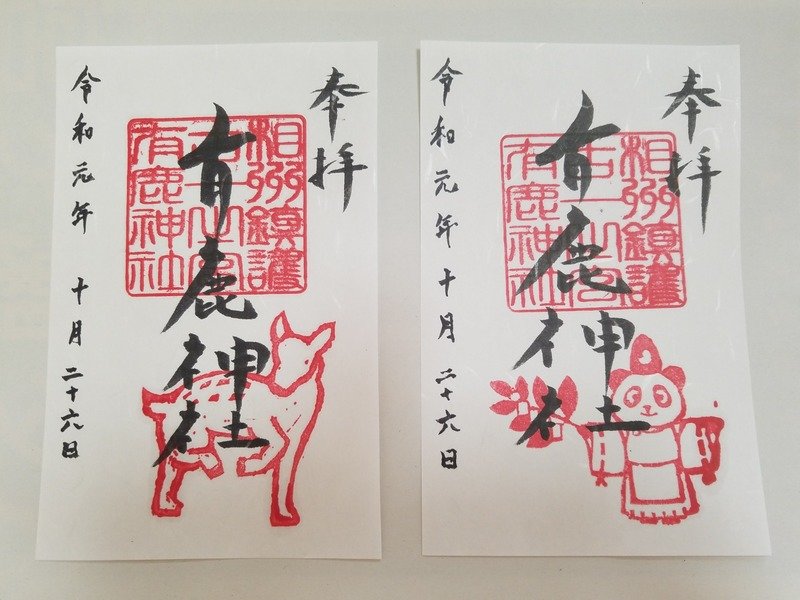 奉拝
相州鎮護
有鹿神社
有鹿神社
令和元年 十月二十六日
奉拝
相州鎮護
有鹿神社
有鹿神社
令和元年 十月二十六日